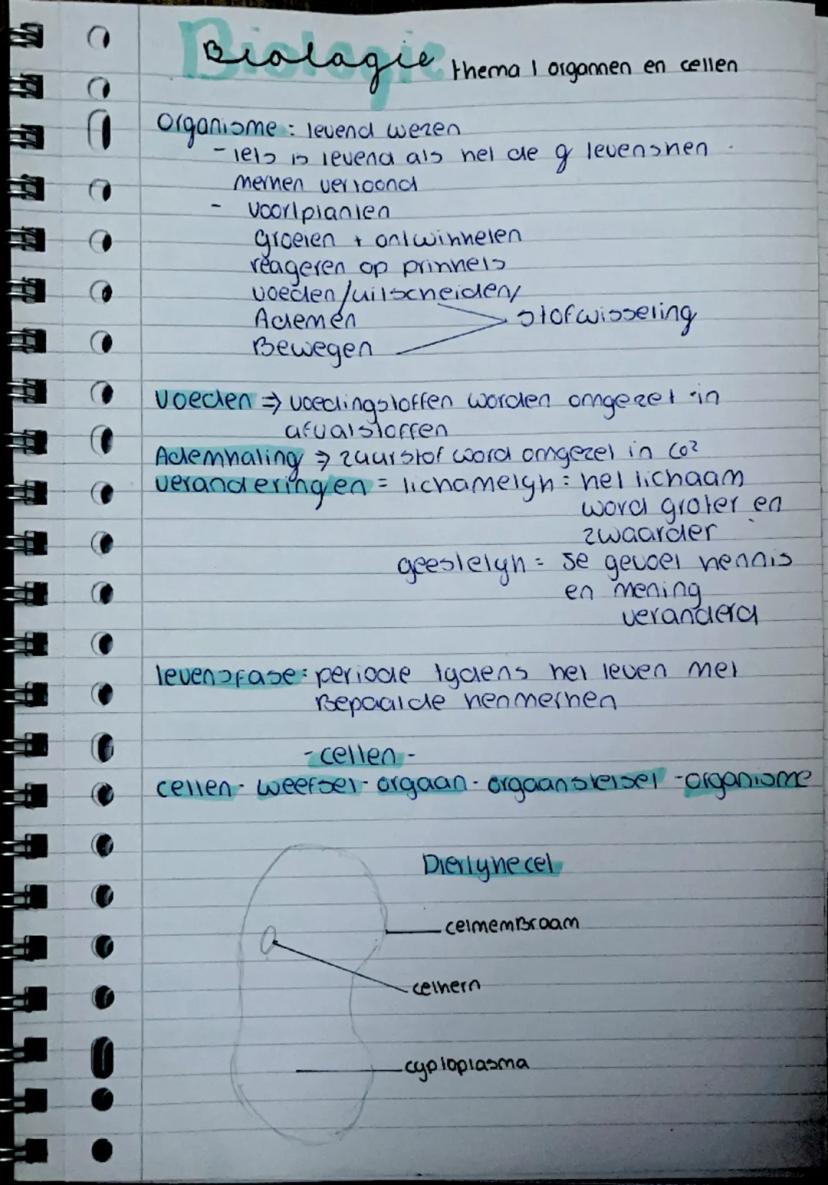 Biologie thema 1 organen en cellen
Organisme : levend wezen
- iets is levend als het de 9 levensken
merken vertoond
- voortplanten
Groeien + ontwikkelen
reageren op prikkels
voeden/uitscheiden/
Ademen
stofwisseling
Bewegen
voeden ⇒ voedingstoffen worden omgezet in
afvalstoffen
Ademhaling ⇒ zuurstof word omgezet in CO2
veranderingen = lichamelijk = het lichaam
word groter en
zwaarder
geestelijk = je gevoel kennis
en mening
veranderd
levensfase : periode tijdens het leven met
Bepaalde kenmerken
- cellen -
cellen - weefsel - orgaan - orgaanstelsel - organisme
Dierlijke cel
celmembraam
celkern
cyptoplasma